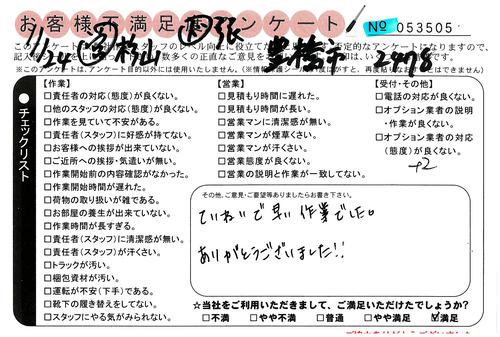 お客様不満足度アンケート
№ 053505
1/24
杉山
出張
豊橋市
2478
※このアンケートは、アンケート目的以外には使用いたしません。
チェックリスト
【作業】
□責任者の対応(態度)が良くない。
□他のスタッフの対応(態度)が良くない。
□作業を見ていて不安がある。
□責任者(スタッフ)に好感が持てない。
□お客様への挨拶が出来ていない。
□ご近所への挨拶・気遣いが無い。
□作業開始前の内容確認がなかった。
□作業開始時間が遅れた。
□荷物の取り扱いが雑である。
□お部屋の養生が出来ていない。
□作業時間が長すぎる。
□責任者(スタッフ)に清潔感が無い。
□責任者(スタッフ)が汗くさい。
□トラックが汚い。
□梱包資材が汚い。
□運転が不安(下手)である。
□靴下の履き替えをしてない。
□スタッフにやる気がみられない。
【営業】
□見積もり時間に遅れた。
□見積もり時間が長い。
□営業マンに清潔感が無い。
□営業マンが煙草くさい。
□営業マンが汗くさい。
□営業態度が良くない。
□営業の説明と作業が一致してない。
【受付・その他】
□電話の対応が良くない。
□オプション業者の説明
・作業が良くない。
□オプション業者の対応
(態度)が良くない。
+2
その他、ご意見・ご要望等ありましたらお書き下さい。
ていねいで早い作業でした。
ありがとうございました!!
☆当社をご利用いただきまして、ご満足いただけたでしょうか?
□不満 □やや不満 □普通 □やや満足 ☑満足